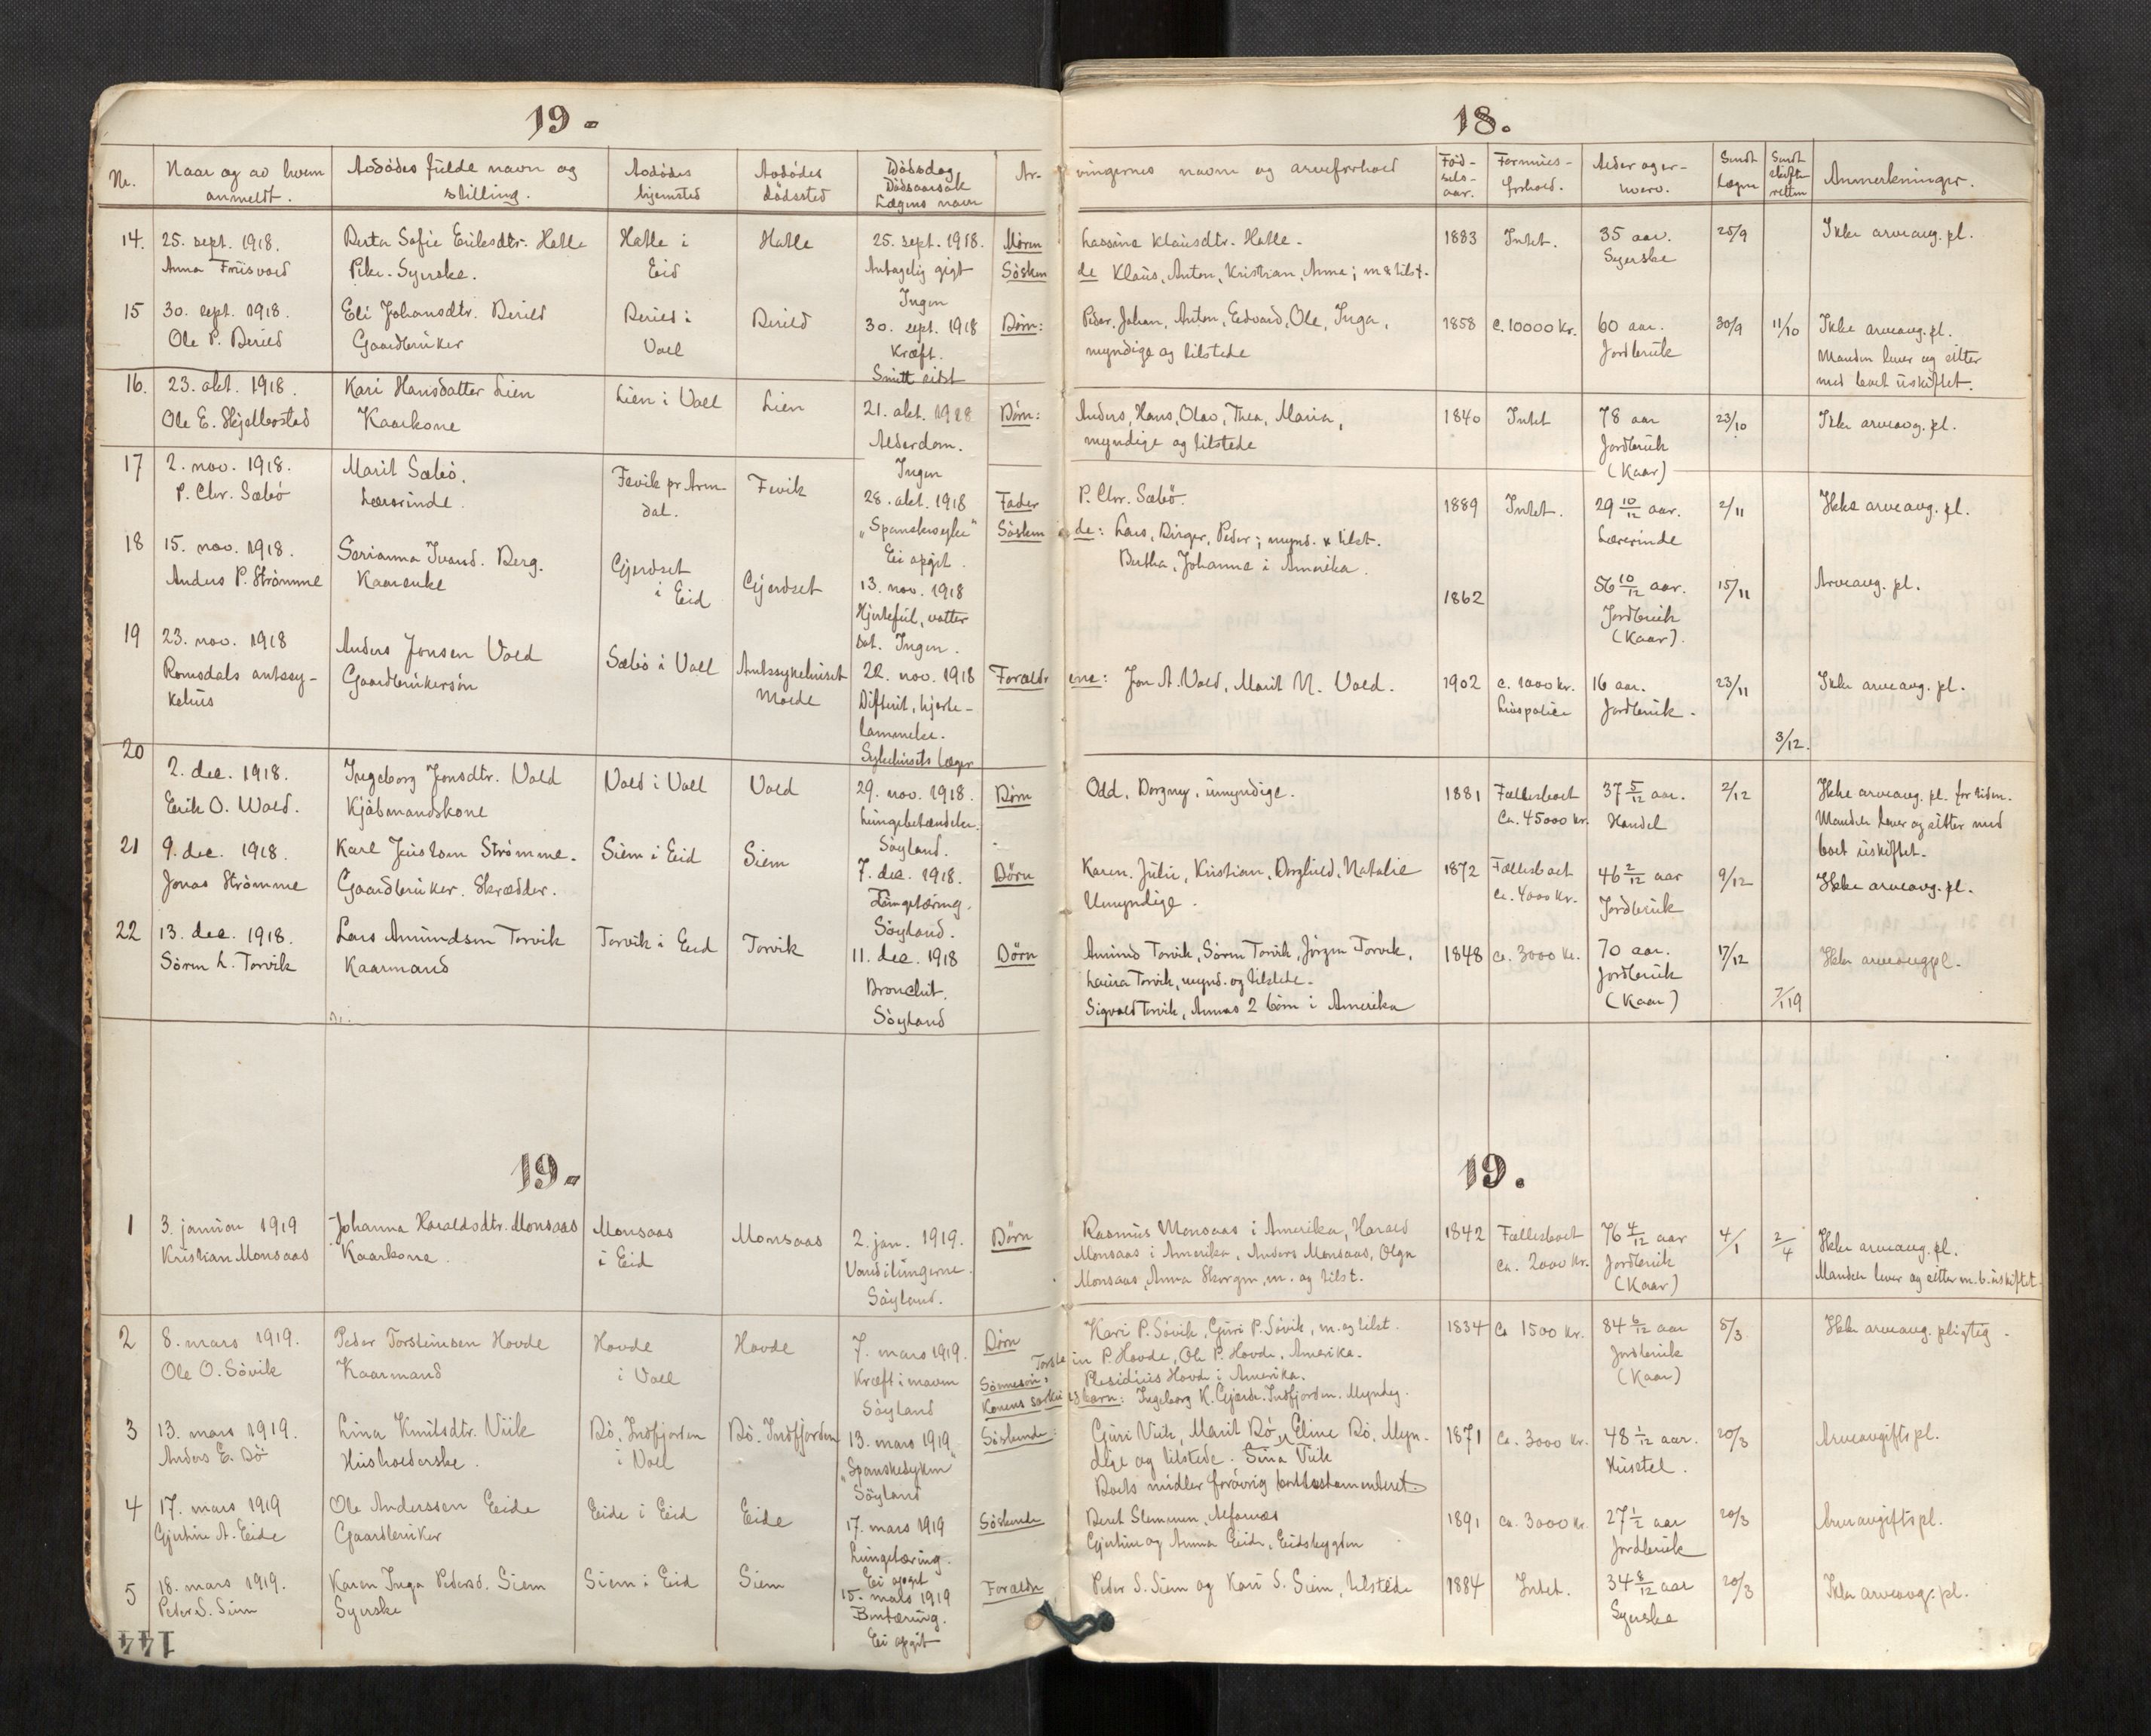 19-
18.
Nr.
Naar og av hvem
anmeldt.
Avdødes fulde navn og
stilling.
Avdødes
hjemsted
Avdødes
dødssted
Dødsdag
Dødsaarsak
Lægens navn
Ar-
vingernes navn og arveforhold
Fød-
sels-
aar.
Formues-
forhold.
Alder og er-
hverv.
Sendt
Lægen
Sendt
skifte-
retten
Anmerkninger.
14.
25. sept. 1918.
Anna Friisvold
Berta Sofie Eriksdtr. Halle
Pike. Syerske.
Halle i
Eid
Halle
25. sept. 1918.
Antagelig gigt
Ingen
Moren
Søsken
Lassine Klausdtr. Halle.
de Klaus, Anton, Kristian, Anne; m & tilst.
1883
Intet.
35 aar.
Syerske
25/9
Ikke arveavg. pl.
15
30. sept. 1918.
Ole P. Berild
Eli Johansdtr. Berild
Gaardbruker
Berild i
Voll
Berild
30. sept. 1918
Kræft.
Smitt eidt
Børn:
Peder, Johan, Anton, Edvard, Ole, Inga,
myndige og tilstede
1858
c. 10000 kr.
60 aar.
Jordbruk
30/9
11/10
Ikke arveavg. pl.
Manden lever og sitter
med boet uskiftet.
16.
23. okt. 1918.
Ole E. Skjelbostad
Kari Hansdatter Lien
Kaarkone
Lien i Voll
Lien
21. okt. 1918
Alderdom.
Ingen
Børn:
Anders, Hans, Olav, Thea, Maria,
myndige og tilstede
1840
Intet
78 aar
Jordbruk
(Kaar)
23/10
Ikke arveavg. pl.
17
2. nov. 1918.
P. Chr. Sæbø
Marit Sæbø.
Lærerinde.
Fevik pr. Aren
dal.
Fevik
28. okt. 1918
„Spanskesyke"
Ei opgit.
Fader
Søsken
P. Chr. Sæbø.
de: Lars, Birger, Peder; mynd. & tilst.
Bertha, Johanna i Amerika.
1889
Intet.
29 10/12 aar.
Lærerinde
2/11
Ikke arveavg. pl.
18
15. nov. 1918.
Anders P. Strømme
Serianna Ivarsd. Berg.
Kaarenke
Gjerdset
i Eid
Gjerdset
13. nov. 1918
Hjertefeil, vatter
sot. Ingen.
1862
56 10/12 aar.
Jordbruk
(Kaar).
15/11
Arveavg. pl.
19
23. nov. 1918
Romsdals amtssy-
kehus
Anders Jonsen Vold
Gaardbrukersøn
Sæbø i Voll
Amtssykehuset
Molde
22. nov. 1918
Difterit, hjerte-
lammelse.
Sykehusets læger
Forældr
ene: Jon A. Vold, Marit N. Vold.
1902
c. 1000 kr.
Livspolice
16 aar.
Jordbruk.
23/11
3/12.
Ikke arveavg. pl.
20
2. dec. 1918.
Erik O. Wold.
Ingeborg Jonsdtr. Vold
Kjøbmandskone
Vold i Voll
Vold
29. nov. 1918.
Lungebetændelse.
Søyland.
Børn
Odd, Dagny, umyndige.
1881
Fællesboet
Ca. 45000 kr.
37 5/12 aar.
Handel
2/12
Ikke arveavg. pl. for tiden.
Manden lever og sitter med
boet uskiftet.
21
9. dec. 1918.
Jonas Strømme
Karl Strømme.
Gaardbruker. Skrædder.
Siem i Eid
Siem
7. dec. 1918.
Lungetæring.
Søyland.
Børn
Karen, Julie, Kristian, Natalie
Umyndige.
1872
Fællesboet
ca. 4000 kr.
46 2/12 aar
Jordbruk
9/12
Ikke arveavg. pl.
22
13. dec. 1918.
Søren L. Torvik
Lars Amundsen Torvik
Kaarmand
Torvik i Eid
Torvik
11. dec. 1918
Bronchit.
Søyland
Børn
Amund Torvik, Søren Torvik, Jørgen Torvik,
Laura Torvik, mynd. og tilstede.
Sigvald Torvik, Annas 2 børn i Amerika
1848
ca. 3000 kr.
70 aar.
Jordbruk
(Kaar)
17/12
7/1 19
Ikke arveavg pl.
19-
19.
1
3. januar 1919
Kristian Monsaas
Johanna Haraldsdtr. Monsaas
Kaarkone.
Monsaas
i Eid
Monsaas
2. jan. 1919.
Vand i lungerne.
Søyland.
Børn
Rasmus Monsaas i Amerika, Harald
Monsaas i Amerika, Anders Monsaas, Olga
Monsaas, Anna Skorgen, m. og tilst.
1842
Fællesboet
ca. 2000 kr.
76 4/12 aar
Jordbruk
(Kaar)
4/1
2/4
Ikke arveavg. pl.
Manden lever og sitter m. b. uskiftet
2
8. mars 1919.
Ole O. Søvik
Peder Torsteinsen Hovde
Kaarmand
Hovde
i Voll
Hovde
7. mars 1919.
Kræft i maven
Søyland
Børn
Kari P. Søvik, Guri P. Søvik, m. og tilst.
Torstein P. Hovde, Ole P. Hovde, Amerika.
Sønnesøn: Plesidius Hovd i Amerika.
Konens særkuldsbarn: Ingeborg K. Gjærde. Indfjorden. Myndig.
1834
Ca 1500 kr.
84 6/12 aar
Jordbruk
(Kaar)
8/3
Ikke arveavg. pligtig.
3
13. mars 1919.
Anders E. Bø
Lina Knutsdtr. Viik
Husholderske.
Bø, Indfjorden
i Voll
Bø, Indfjorden
13. mars 1919
„Spanskesyken"
Søyland
Søskende:
Guri Viik, Marit Bø, Eline Bø, Myn-
dige og tilstede. Sina Viik
Boets midler forøvrig borttestamenteret.
1871
Ca. 3000 kr.
48 1/12 aar.
Husstel.
20/3
Arveavgifts pl.
4
17. mars 1919
Gjertine A. Eide
Ole Anderssen Eide
Gaardbruker
Eide i Eid
Eide
17. mars 1919
Lungetæring.
Ei opgit
Søskende
Beret Slemmen, Alfarnæs
Gjertine og Anna Eide, Eidsbygden
1891
ca. 3000 kr.
27 1/2 aar
Jordbruk
20/3
Arveavgifts pl.
5
18. mars 1919.
Peder S. Siem
Karen Inga Pedersd. Siem
Syerske
Siem i Eid
Siem
15. mars 1919
Bentæring.
Ei opgit
Forældre
Peder S. Siem og Kari S. Siem, tilstede
1884
Intet.
34 8/12 aar
Syerske
20/3
Ikke arveavg. pl.
144